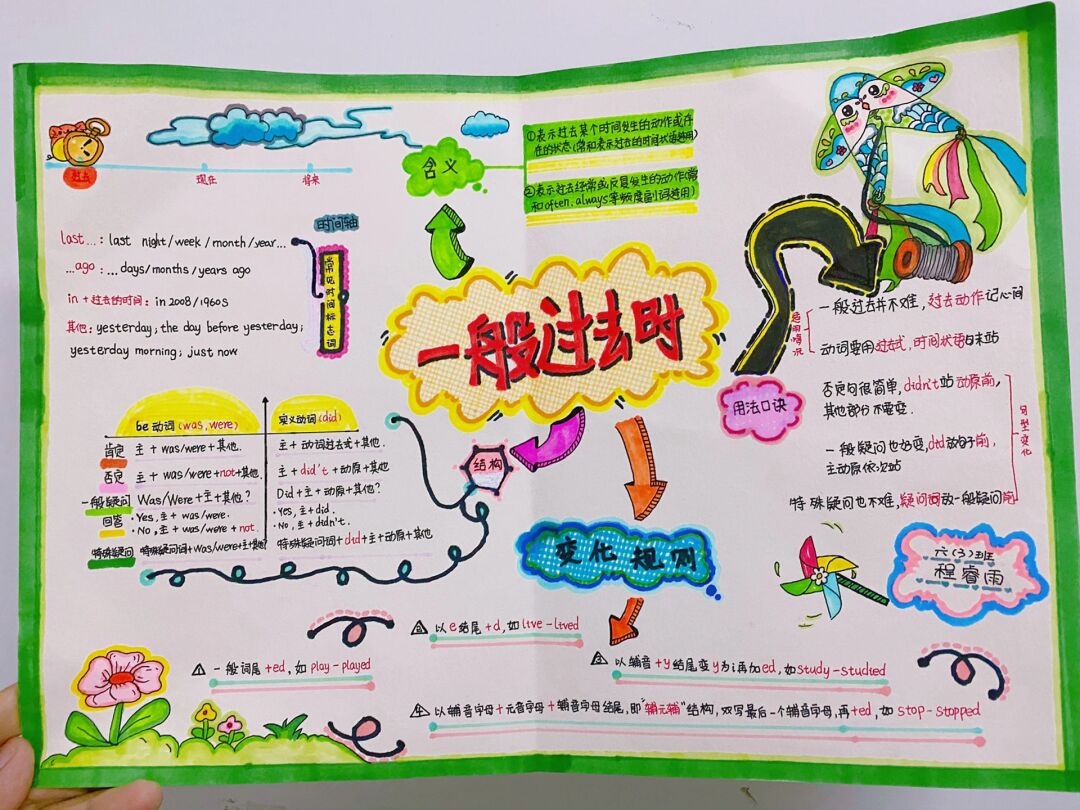 一般过去时
过去
现在
将来
时间轴
含义
①表示过去某个时间发生的动作或存
在的状态(常和表示过去的时间状语连用)
②表示过去经常或反复发生的动作(常
和often、always等频度副词连用)
常见时间标志词
last...: last night/week/month/year...
...ago: ...days/months/years ago
in + 过去的时间: in 2008/1960s
其他: yesterday; the day before yesterday;
yesterday morning; just now
结构
be 动词 (was, were)
实义动词 (did)
肯定 主 + was/were + 其他.
主 + 动词过去式 + 其他.
否定 主 + was/were +not+其他.
主 + did't + 动原 + 其他
一般疑问 Was/Were +主+其他?
Did + 主 + 动原+其他?
回答 · Yes, 主 + was/were.
· No, 主 + was/were + not.
· Yes, 主 + did.
· No, 主 + didn't.
特殊疑问 特殊疑问词+Was/were+主+其他?
特殊疑问词 + did + 主 + 动原 + 其他
用法口诀
一般过去并不难, 过去动作记心间
动词要用过去式, 时间状语句末站
否定句很简单, didn't 站动原前,
其他部分不要变.
一般疑问也好变, did放句子前,
主动原依次站
特殊疑问也不难, 疑问词放一般疑问前
句型变化
变化规则
1 一般词尾 +ed, 如 play-played
2 以e结尾 +d, 如 live-lived
3 以辅音 +y 结尾变y为i再加ed, 如study-studied
4 以辅音字母+元音字母+辅音字母结尾, 即"辅元辅"结构, 双写最后一个辅音字母, 再+ed, 如 stop-stopped
六(3)班
程睿雨